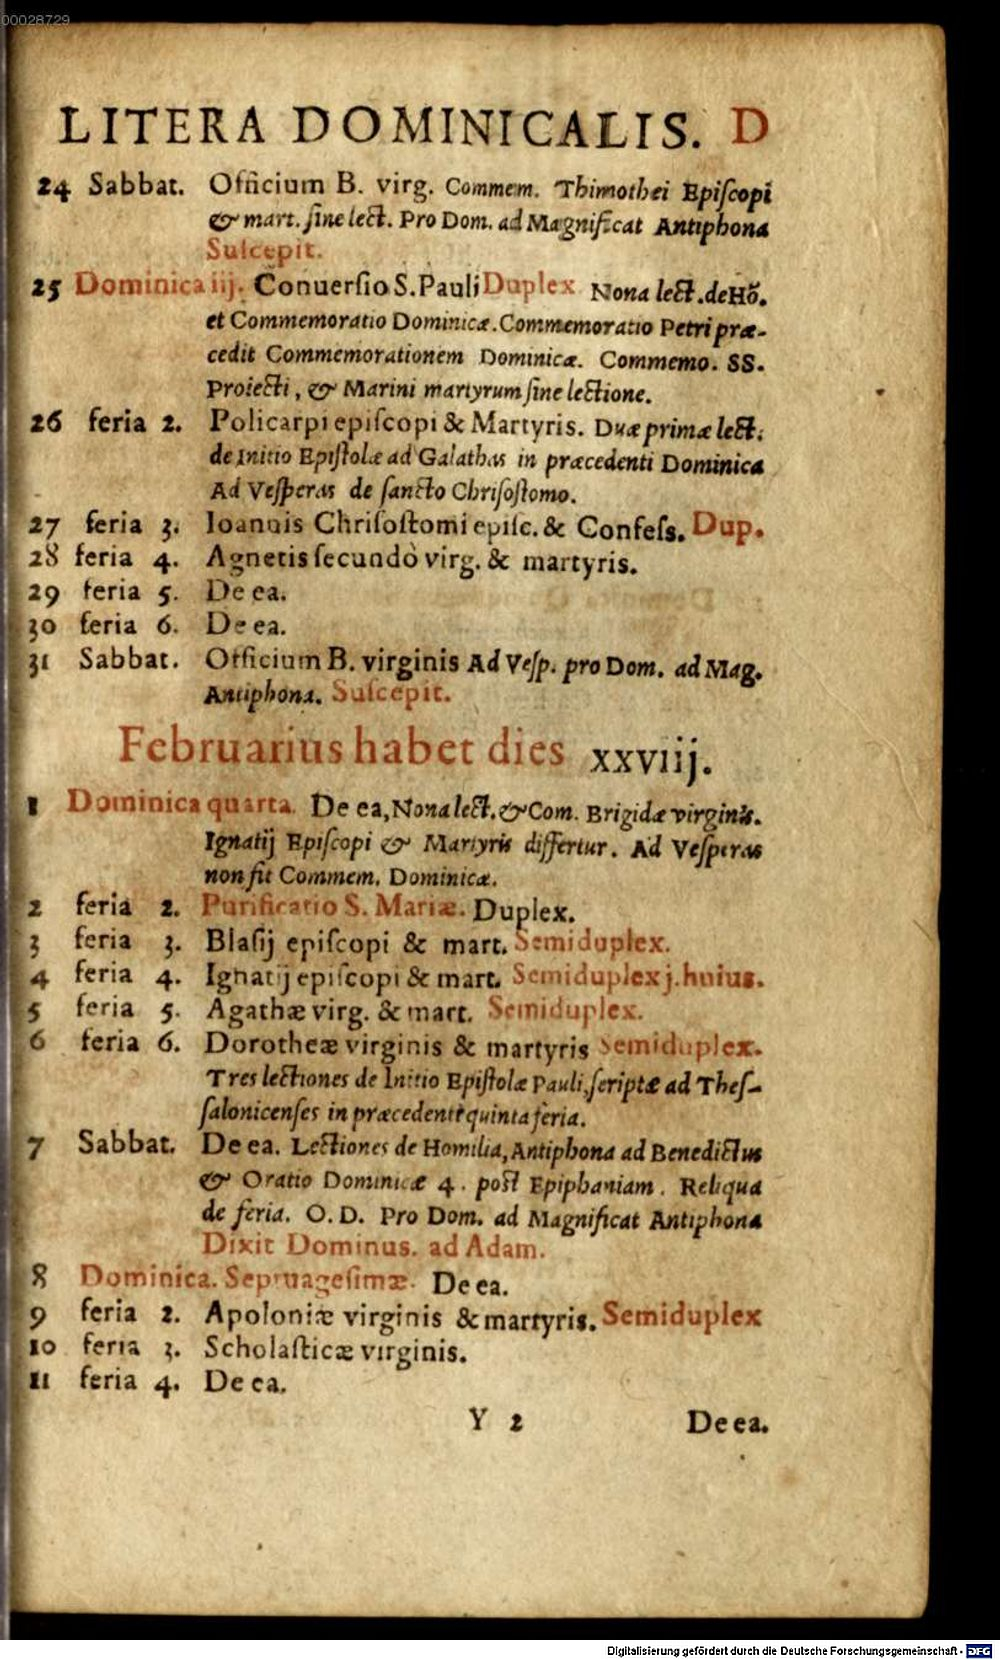 00028729
LITERA DOMINICALIS. D
24 Sabbat. Officium B. virg. Commem. Thimothei Epiſcopi
& mart. ſine lect. Pro Dom. ad Magnificat Antiphona
Suſcepit.
25 Dominica iij. Conuerſio S. Pauli Duplex Nona lect. de Hõ.
et Commemoratio Dominicæ. Commemoratio Petri præ-
cedit Commemorationem Dominicæ. Commemo. SS.
Proiecti, & Marini martyrum ſine lectione.
26 feria 2. Policarpi epiſcopi & Martyris. Duæ primæ lect.
de Initio Epiſtolæ ad Galathas in præcedenti Dominica
Ad Veſperas de ſancto Chriſoſtomo.
27 feria 3. Ioannis Chriſoſtomi epiſc. & Confeſs. Dup.
28 feria 4. Agnetis ſecundò virg. & martyris.
29 feria 5. De ea.
30 feria 6. De ea.
31 Sabbat. Officium B. virginis Ad Veſp. pro Dom. ad Mag.
Antiphona. Suſcepit.
Februarius habet dies xxviij.
1 Dominica quarta. De ea, Nona lect. & Com. Brigidæ virginis.
Ignatij Epiſcopi & Martyris differtur. Ad Veſperas
non fit Commem. Dominicæ.
2 feria 2. Purificatio S. Mariæ. Duplex.
3 feria 3. Blaſij epiſcopi & mart. Semiduplex.
4 feria 4. Ignatij epiſcopi & mart. Semiduplex j. huius.
5 feria 5. Agathæ virg. & mart. Semiduplex.
6 feria 6. Dorotheæ virginis & martyris Semiduplex.
Tres lectiones de Initio Epiſtolæ Pauli, ſcriptæ ad Theſ-
ſalonicenſes in præcedenti quinta feria.
7 Sabbat. De ea. Lectiones de Homilia, Antiphona ad Benedictus
& Oratio Dominicæ 4. poſt Epiphaniam. Reliqua
de feria. O. D. Pro Dom. ad Magnificat Antiphona
Dixit Dominus. ad Adam.
8 Dominica. Septuageſimæ. De ea.
9 feria 2. Apoloniæ virginis & martyris. Semiduplex
10 feria 3. Scholaſticæ virginis.
11 feria 4. De ea.
Y 2 De ea.
Digitalisierung gefördert durch die Deutsche Forschungsgemeinschaft - DFG